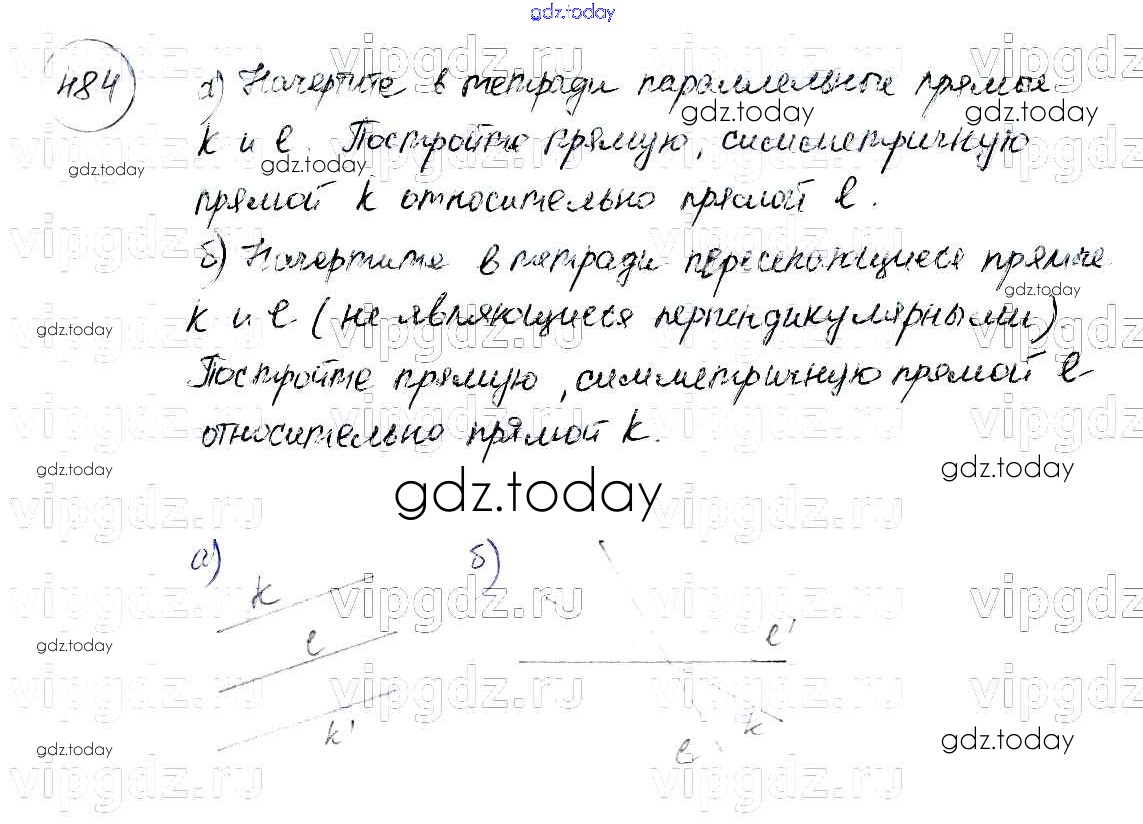 gdz.today
484
а) Начертите в тетради параллельные прямые
k и l. Постройте прямую, симметричную
прямой k относительно прямой l.
б) Начертите в тетради пересекающиеся прямые
k и l (не являющиеся перпендикулярными).
Постройте прямую, симметричную прямой l
относительно прямой k.
gdz.today
а) б)
k
l
k'
l'
k
l
vipgdz.ru
gdz.today